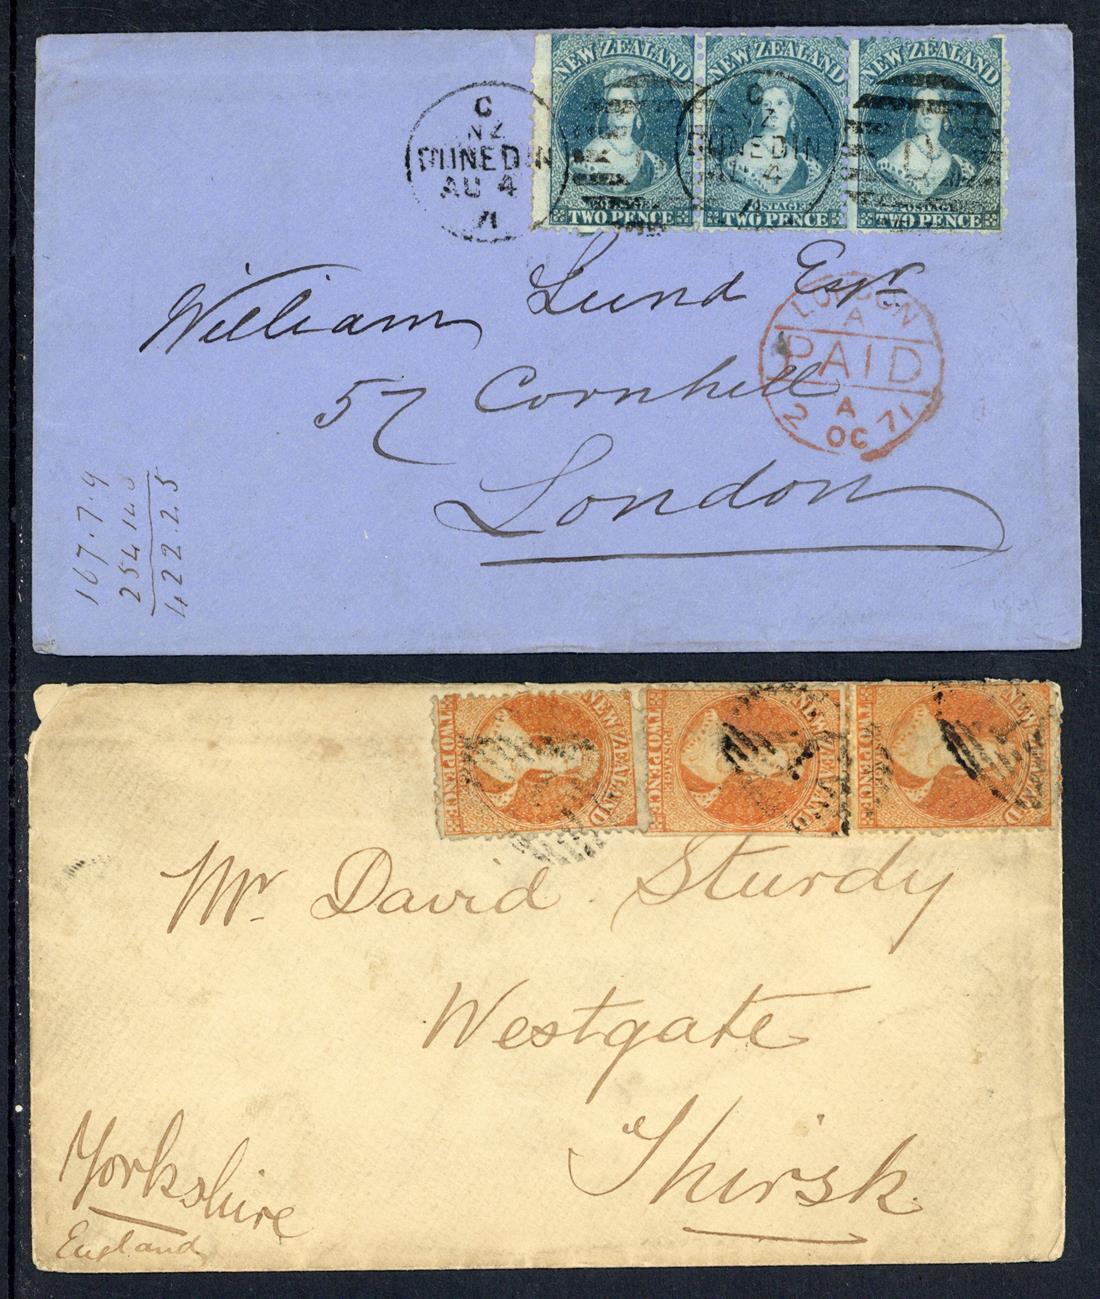 NEW ZEALAND NEW ZEALAND NEW ZEALAND
POSTAGE POSTAGE
TWO PENCE TWO PENCE TWO PENCE
C
NZ
DUNEDIN
AU 4
71
C
NZ
DUNEDIN
AU 4
71
William Lund Esqr
57 Cornhill
London
LONDON
A
PAID
A
2 OC 71
167.7.9
254.14.8
422.2.5
NEW ZEALAND NEW ZEALAND NEW ZEALAND
POSTAGE POSTAGE
TWO PENCE TWO PENCE TWO PENCE
Mr David Sturdy
Westgate
Thirsk
Yorkshire
England